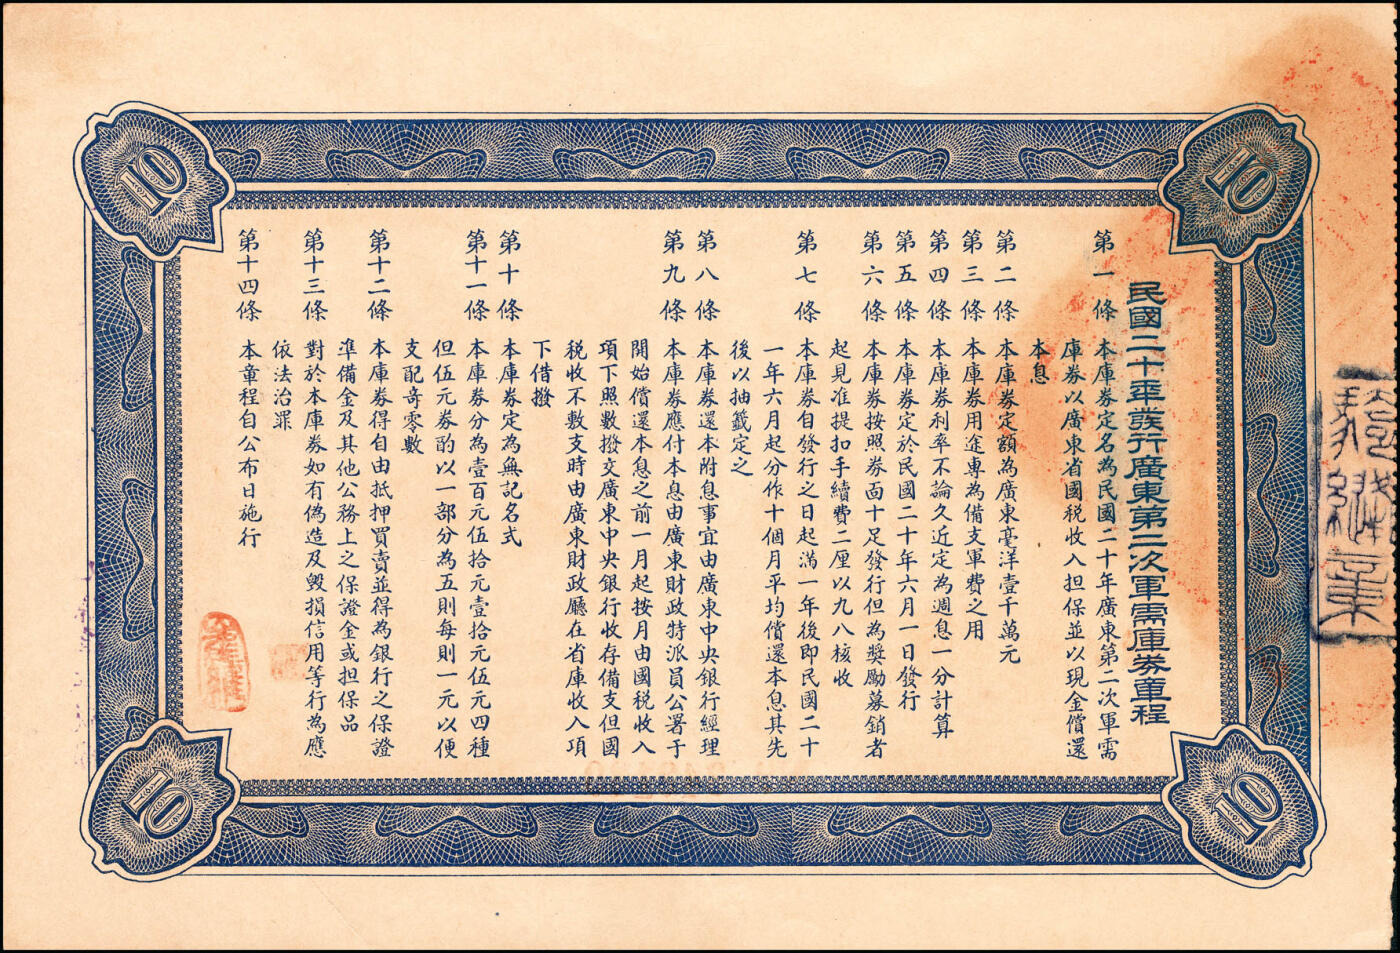 民國二十年發行廣東第二次軍需庫券章程
第一條 本庫券定名為民國二十年廣東第二次軍需
庫券以廣東省國税收入担保並以現金償還
本息
第二條 本庫券定額為廣東毫洋壹千萬元
第三條 本庫券用途專為備支軍費之用
第四條 本庫券利率不論久近定為週息一分計算
第五條 本庫券定於民國二十年六月一日發行
第六條 本庫券按照券面十足發行但為獎勵募銷者
起見准提扣手續費二厘以九八核收
第七條 本庫券自發行之日起滿一年後即民國二十
一年六月起分作十個月平均償還本息其先
後以抽籤定之
第八條 本庫券還本附息事宜由廣東中央銀行經理
第九條 本庫券應付本息由廣東財政特派員公署于
開始償還本息之前一月起按月由國税收入
項下照數撥交廣東中央銀行收存備支但國
税收不敷支時由廣東財政廳在省庫收入項
下借撥
第十條 本庫券定為無記名式
第十一條 本庫券分為壹百元伍拾元壹拾元伍元四種
但伍元券酌以一部分為五則每則一元以便
支配奇零數
第十二條 本庫券得自由抵押買賣並得為銀行之保證
準備金及其他公務上之保證金或担保品
第十三條 對於本庫券如有偽造及毀損信用等行為應
依法治罪
第十四條 本章程自公布日施行
10
10
10
10